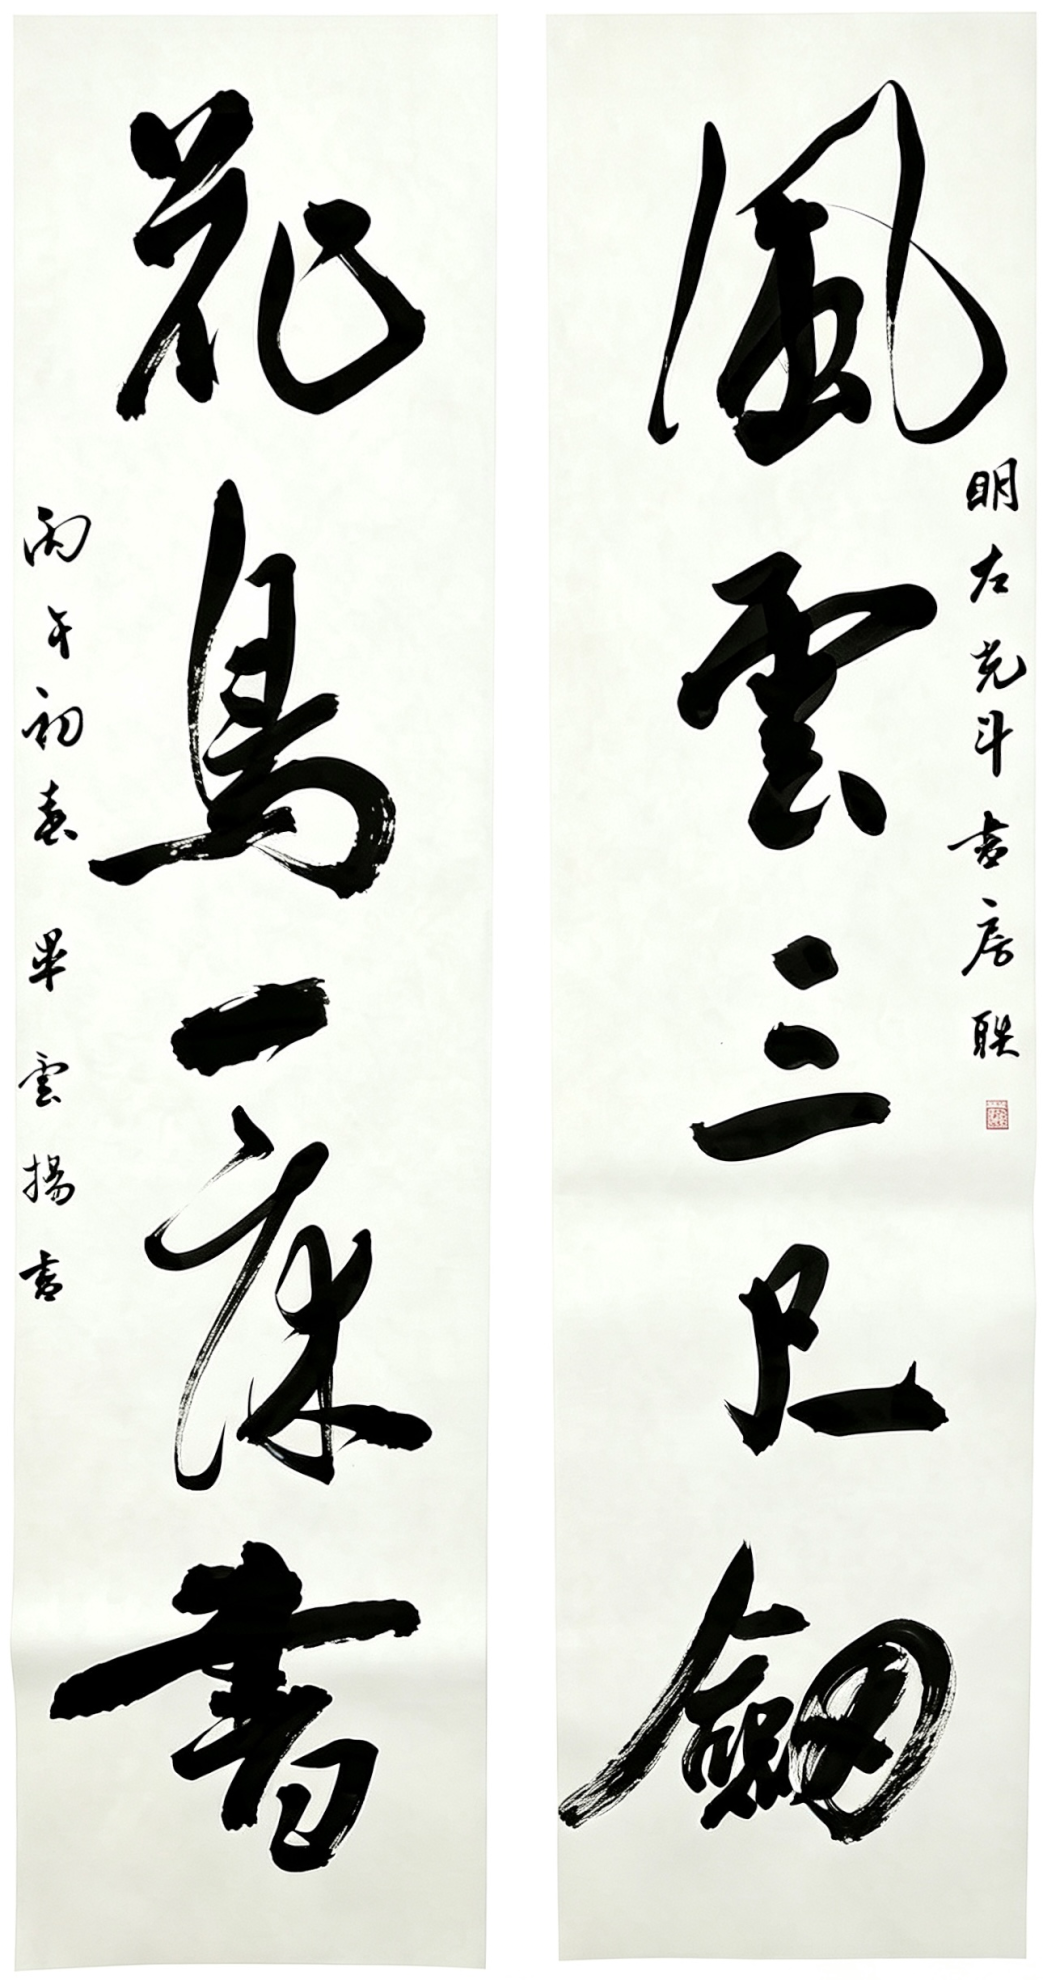 風雲三尺劍
明左光斗書房聯
花鳥一床書
丙午初春 畢雲揚書